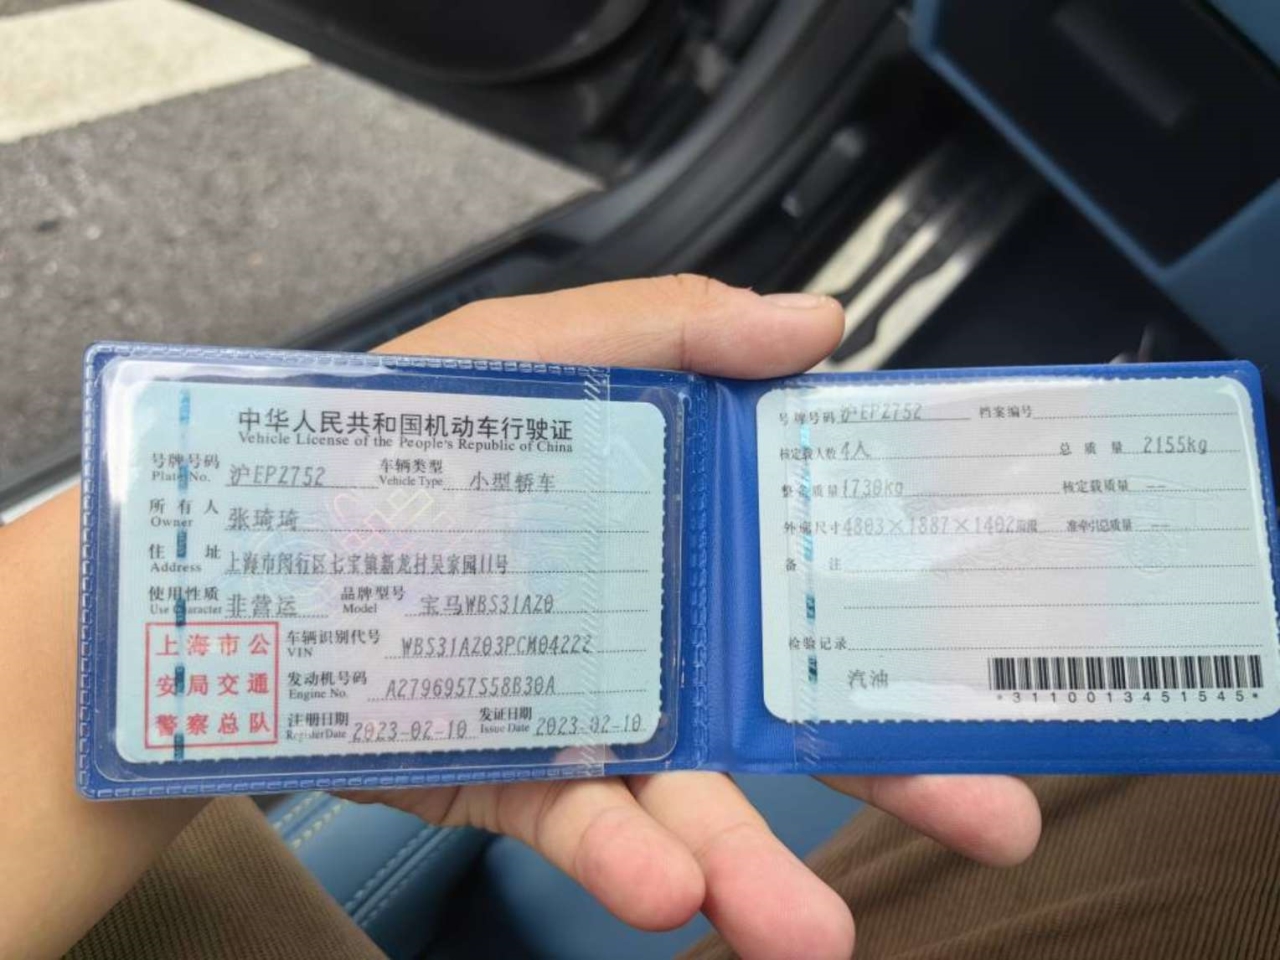 中华人民共和国机动车行驶证
Vehicle License of the People's Republic of China
号牌号码 沪EPZ752 车辆类型 小型轿车
Plate No. Vehicle Type
所有人 张琦琦
Owner
住址 上海市闵行区七宝镇新龙村吴家园11号
Address
使用性质 非营运 品牌型号 宝马WBS31AZ0
Use Character Model
上海市公
安局交通
警察总队
车辆识别代号 WBS31AZ03PCM04222
VIN
发动机号码 A2796957S58B30A
Engine No.
注册日期 2023-02-10 发证日期 2023-02-10
Register Date Issue Date
号牌号码 沪EPZ752 档案编号
核定载人数 4人 总质量 2155kg
整备质量 1730kg 核定载质量 --
外廓尺寸 4803×1887×1402mm 准牵引总质量 --
备注
检验记录
汽油
*3110013451545*